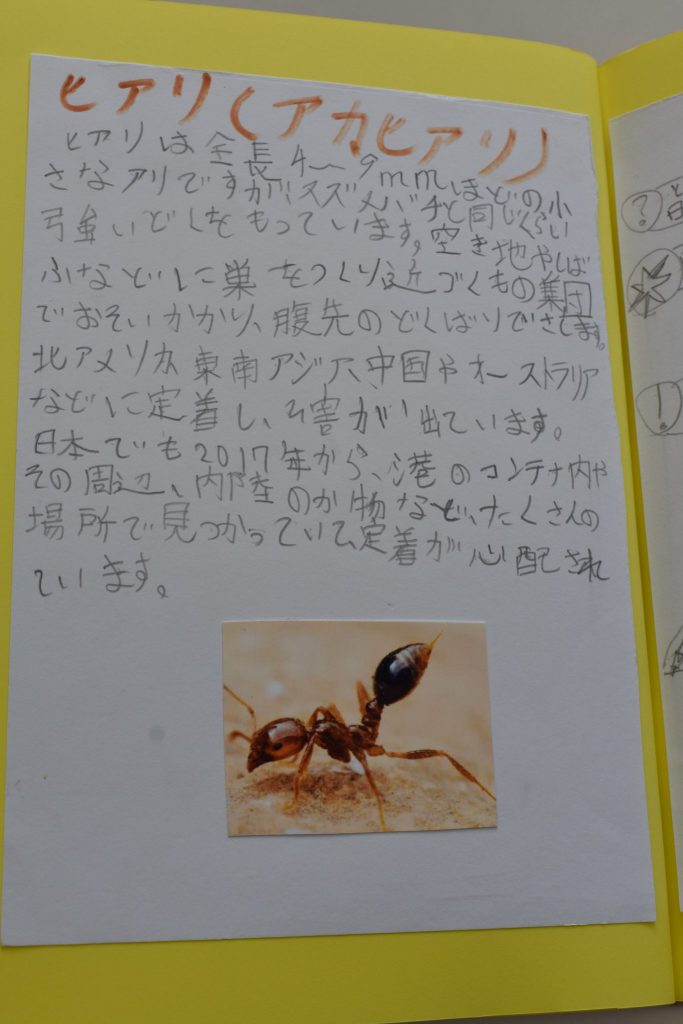 ヒアリ(アカヒアリ)
ヒアリは全長4〜9mmほどの小
さなアリですが、スズメバチと同じくらい
強いどくをもっています。空き地やしば
ふなどに巣をつくり近づくもの集団
でおそいかかり、腹先のどくばりでさします。
北アメリカ、東南アジア、中国やオーストラリア
などに定着し、ひ害が出ています。
日本でも2017年から、港のコンテナ内や
その周辺、内陸のか物など、たくさんの
場所で見つかっていて、定着が心配され
ています。
?
!